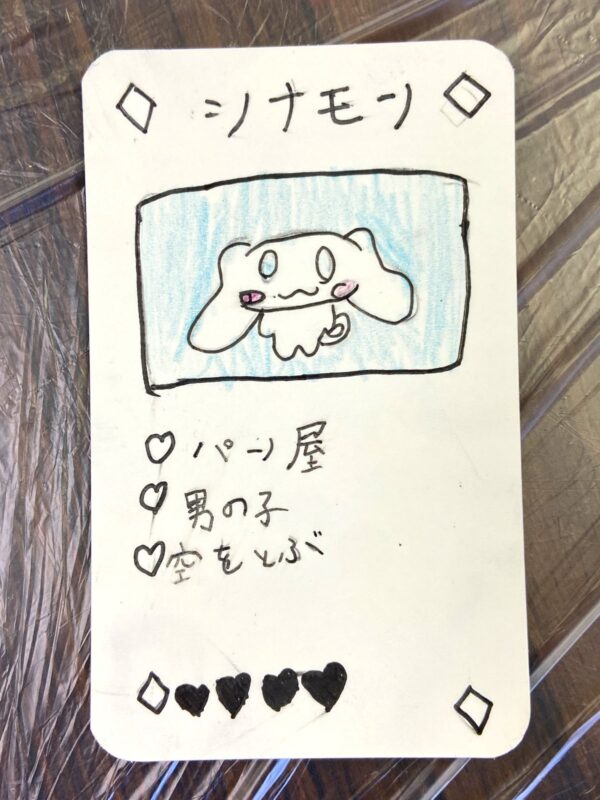 シナモン
パン屋
男の子
空をとぶ